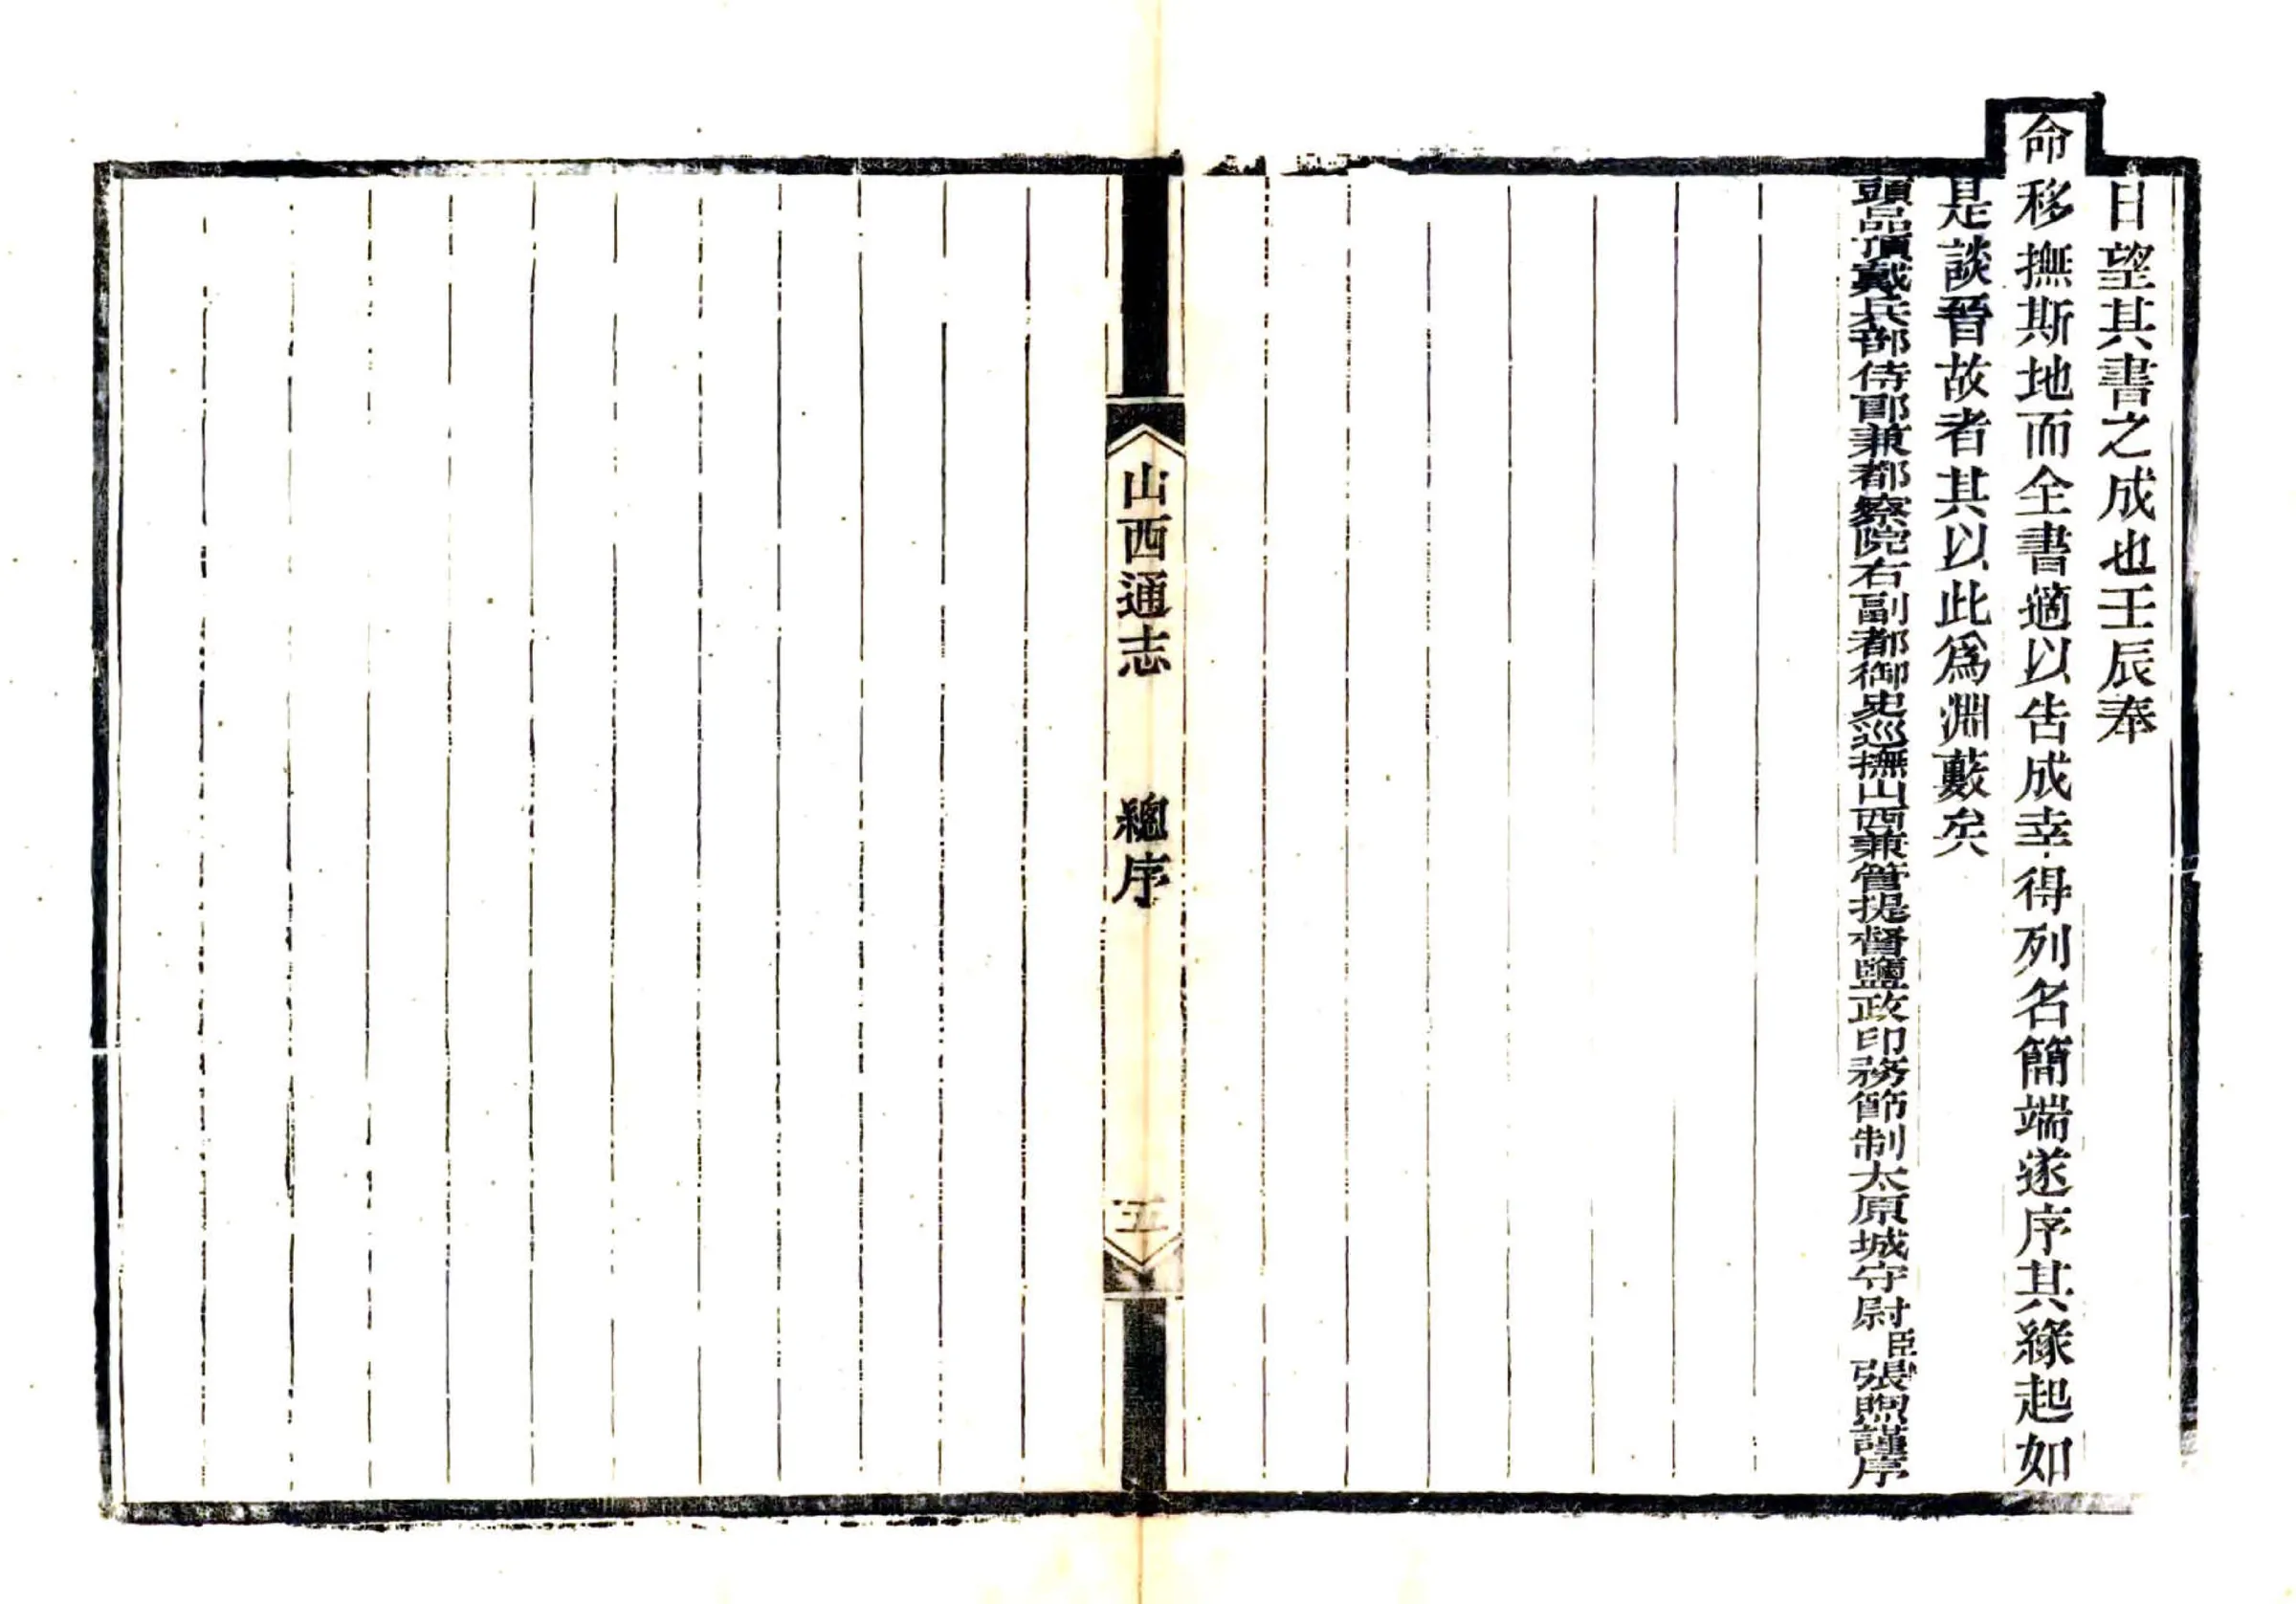 日望其書之成也壬辰奉
命移撫斯地而全書適以告成幸得列名簡端遂序其緣起如
是談晉故者其以此爲淵藪矣
頭品頂戴兵部侍郎兼都察院右副都御史巡撫山西兼管提督鹽政印務節制太原城守尉臣張煦謹序
山西通志 總序 五